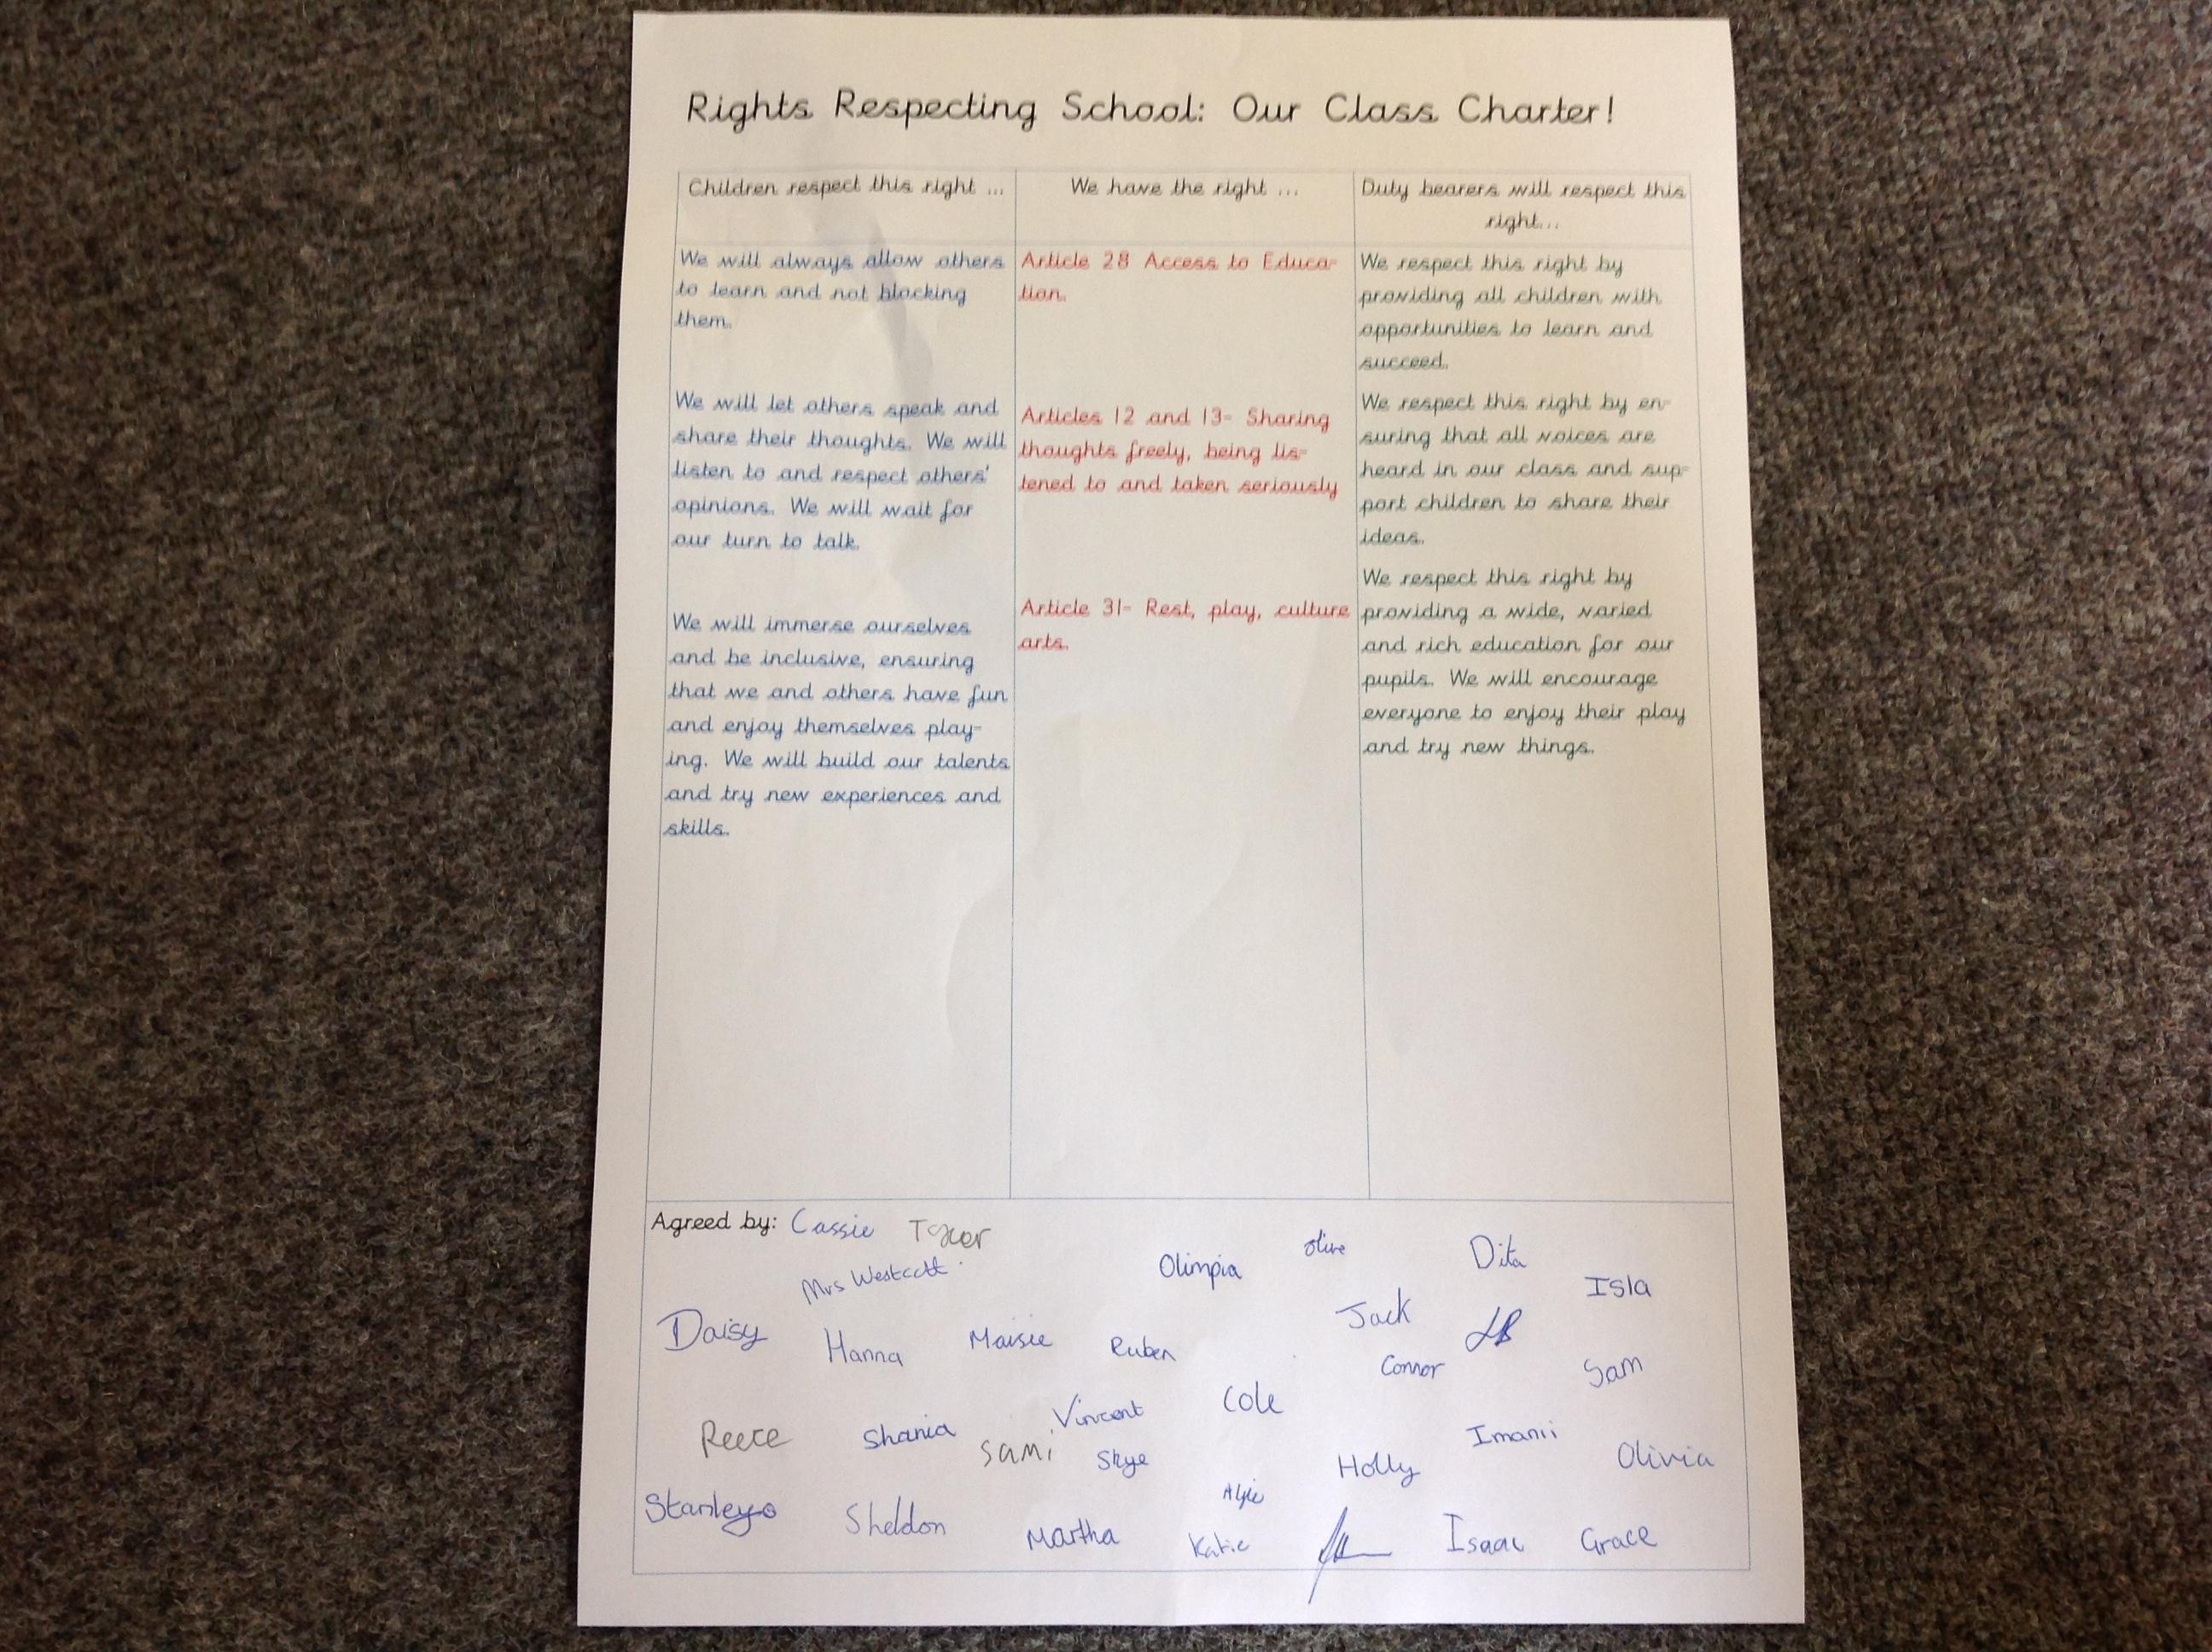 Rights Respecting School: Our Class Charter!
Children respect this right ...
We will always allow others
to learn and not blocking
them.
We will let others speak and
share their thoughts. We will
listen to and respect others'
opinions. We will wait for
our turn to talk.
We will immerse ourselves
and be inclusive, ensuring
that we and others have fun
and enjoy themselves play-
ing. We will build our talents
and try new experiences and
skills.
We have the right ...
Article 28 Access to Educa-
tion.
Articles 12 and 13- Sharing
thoughts freely, being lis-
tened to and taken seriously
Article 31- Rest, play, culture
arts.
Duty bearers will respect this
right...
We respect this right by
providing all children with
opportunities to learn and
succeed.
We respect this right by en-
suring that all voices are
heard in our class and sup-
port children to share their
ideas.
We respect this right by
providing a wide, varied
and rich education for our
pupils. We will encourage
everyone to enjoy their play
and try new things.
Agreed by: Cassie
Mrs Westcott
Olimpia
Olive
Dita
Isla
Daisy
Hanna
Maisie
Ruben
Jack
Connor
Sam
Reece
Shania
Sami
Vincent
Skye
Cole
Holly
Imanii
Olivia
Stanley
Sheldon
Martha
Alfie
Katie
Isaac
Grace